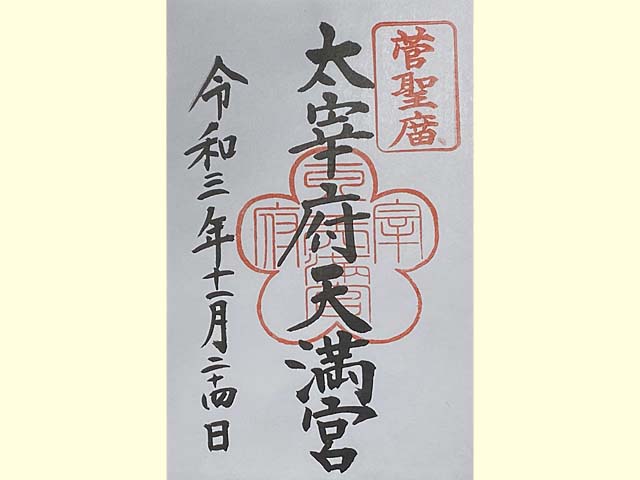 菅聖庿
太宰府天満宮
令和三年十一月二十四日